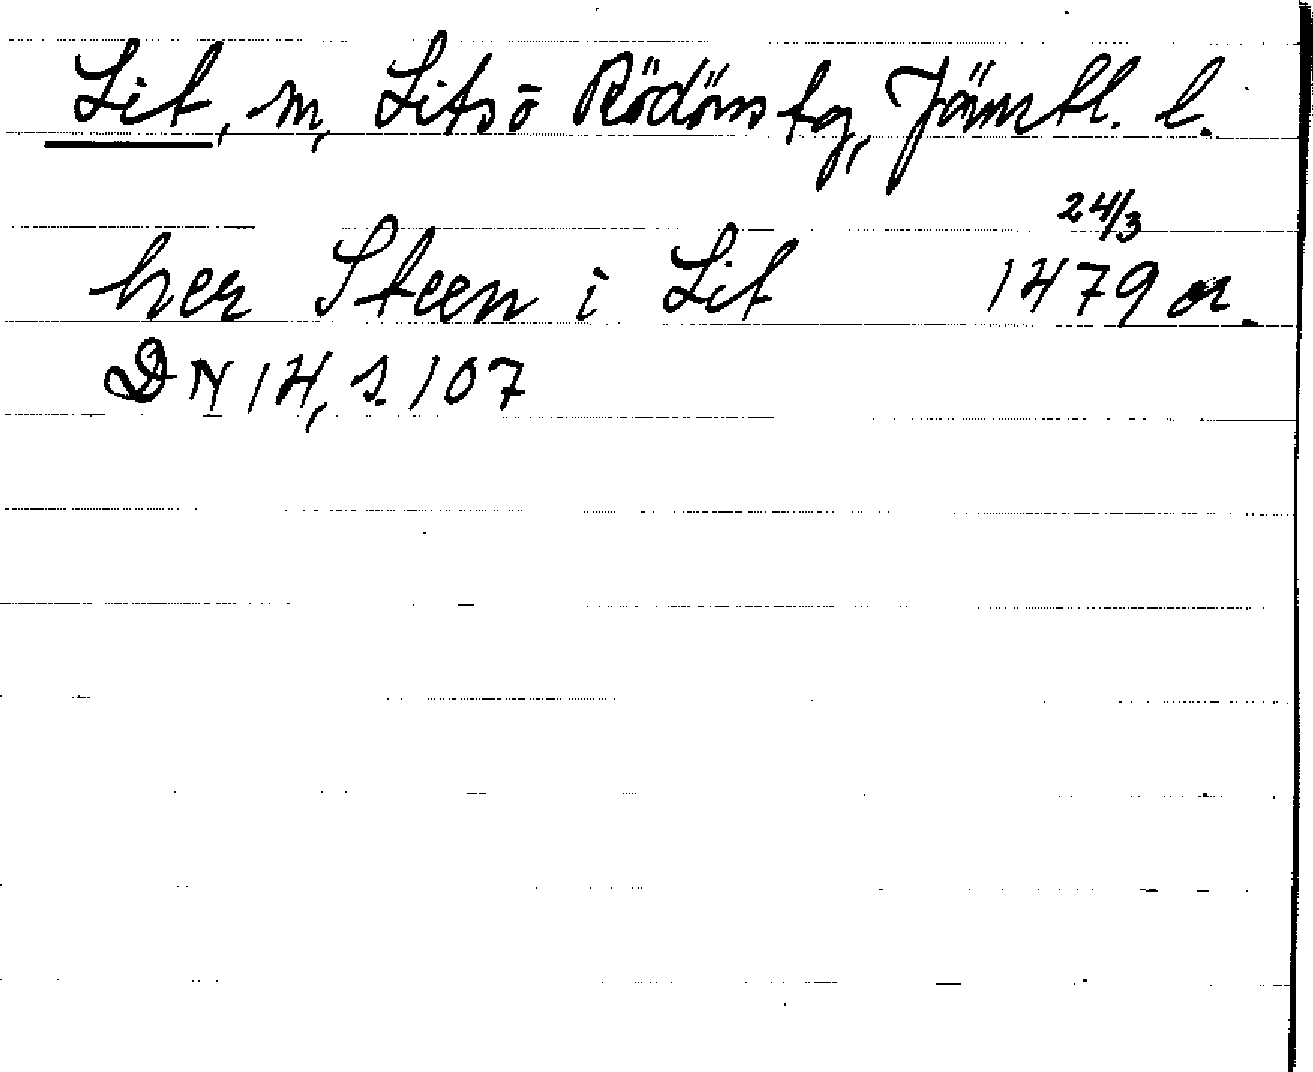 Lit, sn, Lits o Rödöns tg, Jämtl. l.
24/3
her Steen i Lit 1479 or.
DN 14, s 107